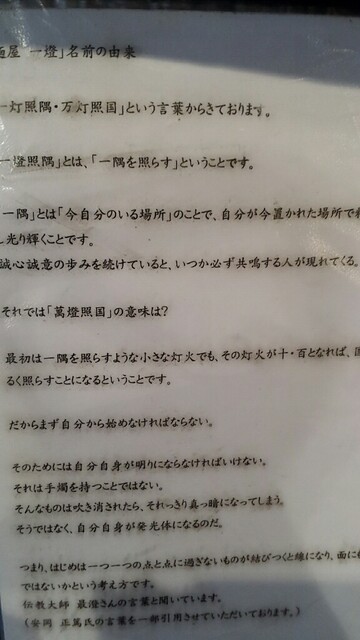 屋「一燈」名前の由来
一灯照隅・万灯照国」という言葉からきております。
一燈照隅」とは、「一隅を照らす」ということです。
一隅」とは「今自分のいる場所」のことで、自分が今置かれた場所で
し光り輝くことです。
誠心誠意の歩みを続けていると、いつか必ず共鳴する人が現れてくる。
それでは「萬燈照国」の意味は?
最初は一隅を照らすような小さな灯火でも、その灯火が十・百となれば、
るく照らすことになるということです。
だからまず自分から始めなければならない。
そのためには自分自身が明りにならなければいけない。
それは手燭を持つことではない。
そんなものは吹き消されたら、それっきり真っ暗になってしまう。
そうではなく、自分自身が発光体になるのだ。
つまり、はじめは一つ一つの点と点に過ぎないものが結びつくと線になり、面に
ではないかという考え方です。
伝教大師 最澄さんの言葉と聞いています。
(安岡 正篤氏の言葉を一部引用させていただいております。)